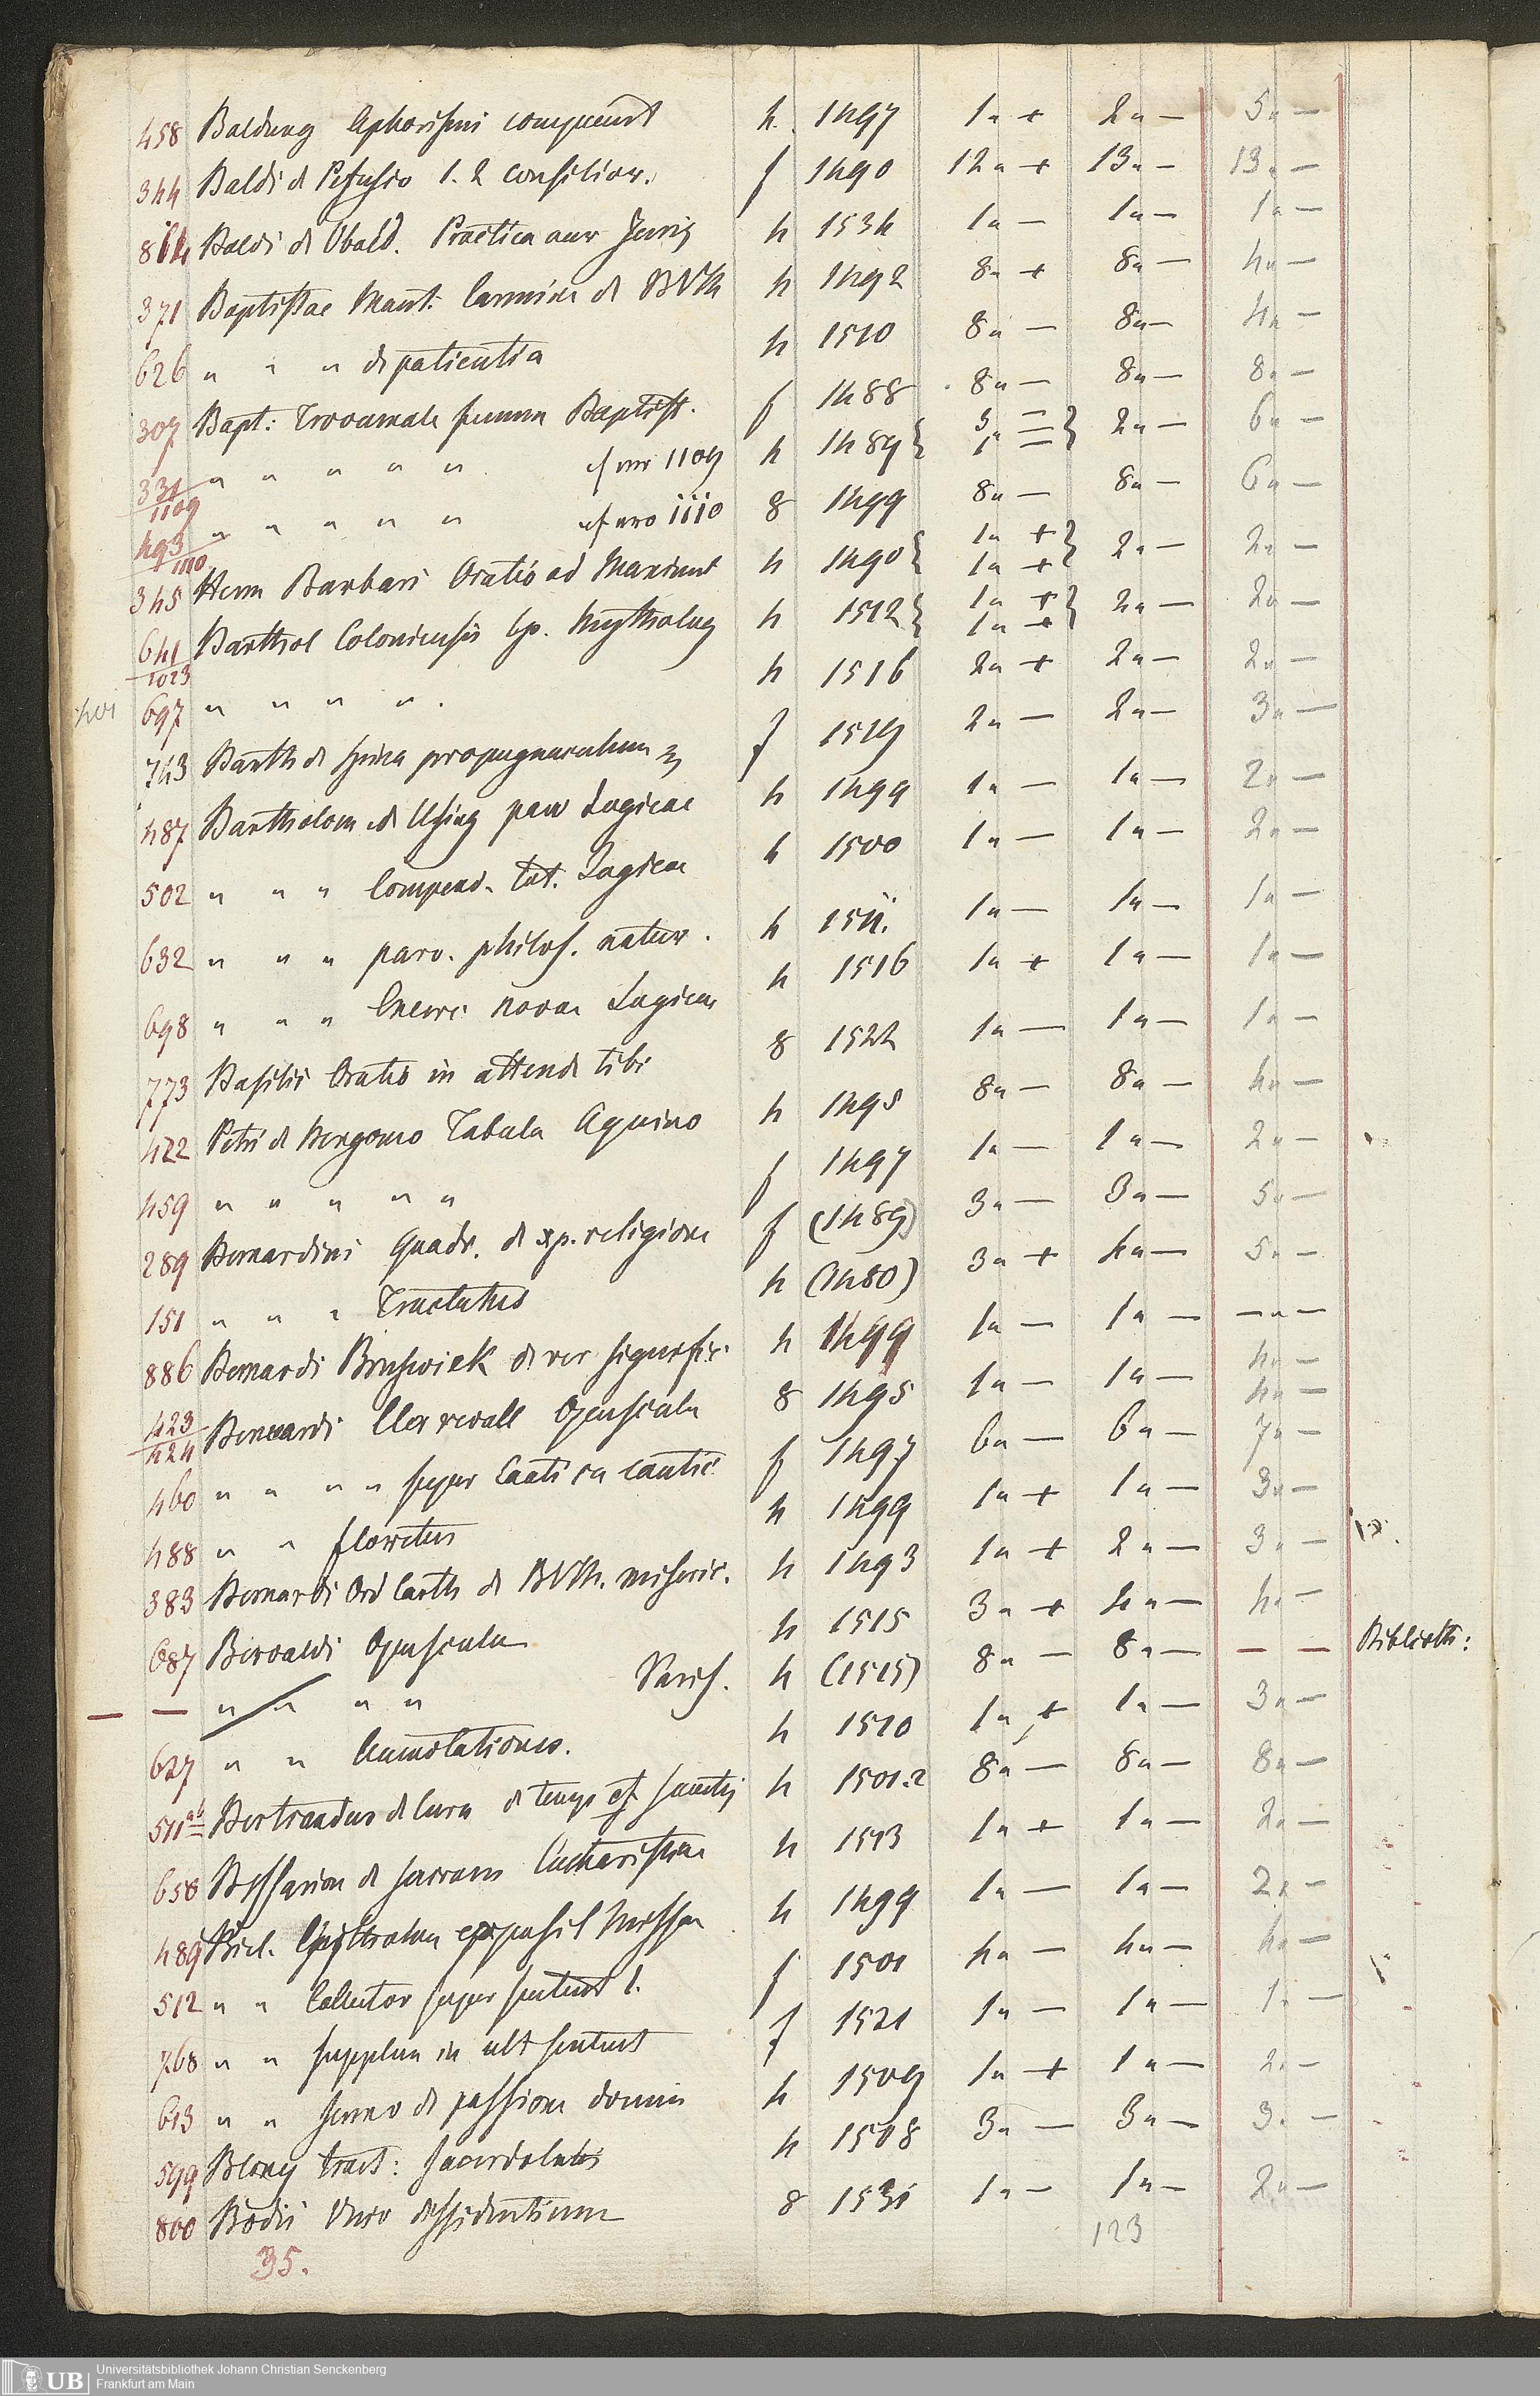 458 Baldung Aphorismi compend 4. 1497 1 „ + 2 „ — 5 „ —
344 Baldi de Perusio 1. 2 consilior. f 1490 12 „ + 13 „ — 13 „ —
864 Baldi de Obald. Practica aur Juris 4 1534 1 „ — 1 „ — 1 „ —
371 Baptistae Mant: Carmina de BVM 4 1492 8 „ + 8 „ — 4 „ —
626 „ „ „ de patientia 4 1510 8 „ — 8 „ — 4 „ —
307 Bapt: Trovamale summa Baptist. f 1488 8 „ — 8 „ — 8 „ —
331/1109 „ „ „ „ „ cf nro 1109 4 1489 { 5 — 1 — } 2 „ — 6 „ —
493/1110 „ „ „ „ „ cf nro 1110 8 1499 8 „ — 8 „ — 6 „ —
345 Herm Barbari Oratio ad 4 1490 { 1 „ + 1 „ + } 2 „ — 2 „ —
641/1023 Barthol Coloniensis Ep. Mytholog 4 1512 { 1 „ + 1 „ + } 2 „ — 2 „ —
697 „ „ „ „ . 4 1516 2 „ + 2 „ — 2 „ —
743 Barth de Spina propugnaculum f 1519 2 „ — 2 „ — 3 „ —
487 Bartholom de Using parv Logicae 4 1499 1 „ — 1 „ — 2 „ —
502 „ „ „ Compend. tot. Logicae 4 1500 1 „ — 1 „ — 2 „ —
632 „ „ „ parv. philos. natur. 4 1511. 1 „ — 1 „ — 1 „ —
698 „ „ „ Exerci novae Logicae 4 1516 1 „ + 1 „ — 1 „ —
773 Basilii Oratio in attende tibi 8 1522 1 „ — 1 „ — 1 „ —
422 Petri de Bergomo Tabula Aquino 4 1495 8 „ — 8 „ — 4 „ —
459 „ „ „ „ „ f 1497 1 „ — 1 „ — 2 „ —
289 Bernardini Quadr. de xp. religione f (1489) 3 „ — 3 „ — 5 „ —
151 „ „ „ Tractatus 4 (1480) 3 „ + 4 „ — 5 „ —
886 Bernardi Brunswick de ver 4 1499 1 „ — 1 „ — — „ —
423/424 Bernardi Clarevall Opuscula 8 1495 1 „ — 1 „ — 4 „ — 4 „ —
460 „ „ „ „ super Cantica cantic f 1497 6 „ — 6 „ — 7 „ —
488 „ „ floretus 4 1499 1 „ + 1 „ — 3 „ —
383 Bernardi Ord Carth de BVM. miseric. 4 1493 1 „ + 2 „ — 3 „ —
687 Beroaldi Opuscula 4 1515 3 „ + 4 „ — 4 „ —
— — „ „ „ „ Paris. 4 (1515) 8 „ — 8 „ — — — Biblioth:
627 „ „ Annotationes. 4 1510 1 „ + 1 „ — 3 „ —
511ab Bertrandus de Cura de temp et sanctis 4 1501.2 8 „ — 8 „ — 8 „ —
658 Bessarion de sacram Eucharistiae 4 1513 1 „ + 1 „ — 2 „ —
489 Biel. Epistolam exposit Missae 4 1499 1 „ — 1 „ — 2 „ —
512 „ „ Collector super sentent 1. f 1501 4 „ — 4 „ — 4 „ —
768 „ „ supplem in ult sentent f 1521 1 „ — 1 „ — 1 „ —
613 „ „ sermo de passione domini 4 1509 1 „ + 1 „ — 2 „ —
599 Blony tract: sacerdotalis 4 1508 3 „ — 3 „ — 3 „ —
800 Bodii Unio dissidentium 8 1531 1 „ — 1 „ — 2 „ —
35. 123
UB Universitätsbibliothek Johann Christian Senckenberg
Frankfurt am Main